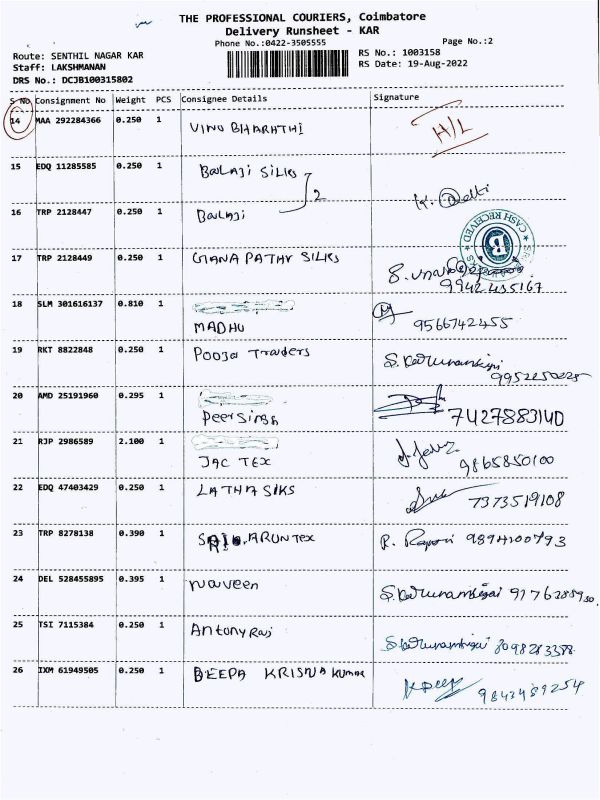 THE PROFESSIONAL COURIERS, Coimbatore
Delivery Runsheet - KAR
Phone No.:0422-3505555
Page No.:2
Route: SENTHIL NAGAR KAR
RS No.: 1003158
Staff: LAKSHMANAN
RS Date: 19-Aug-2022
DRS No.: DCJB100315802
S No Consignment No Weight PCS Consignee Details Signature
14 MAA 292284366 0.250 1 VINO BHARATHI H/L
15 EDQ 11285585 0.250 1 Balaji Silks
2
16 TRP 2128447 0.250 1 Balaji
CASH RECEIVED
17 TRP 2128449 0.250 1 GANAPATHY SILKS
9942435167
18 SLM 301616137 0.810 1
MADHU 9566742455
19 RKT 8822848 0.250 1 Pooja Traders
9952250225
20 AMD 25191960 0.295 1
Peersingh 7427883140
21 RJP 2986589 2.100 1
JAC TEX 9865850100
22 EDQ 47403429 0.250 1 LATHA SIKS 7373519108
23 TRP 8278138 0.390 1 ARUN TEX 9894100793
24 DEL 528455895 0.395 1 naveen
25 TSI 7115384 0.250 1 Antony Raj
26 IXM 61949505 0.250 1 DEEPA KRISNA KUMAR